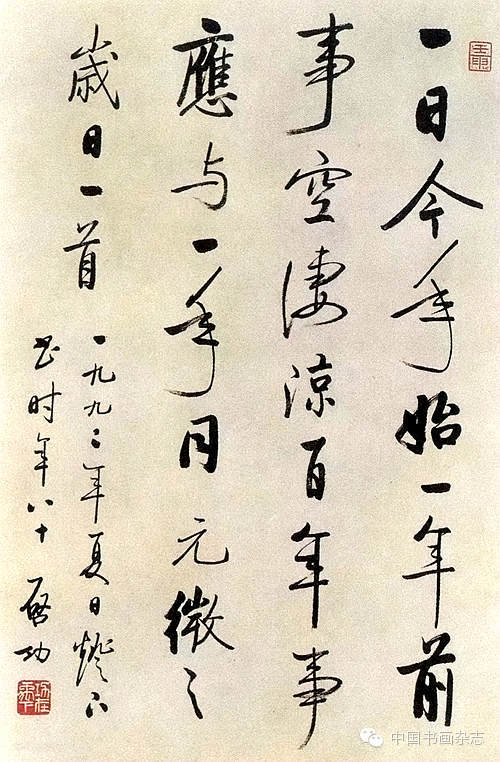 一日今年始一年前
事空淒涼百年事
應与一年同元微之
歲日一首
一九九二年夏日燈下
书时年八十 啓功
中国书画杂志